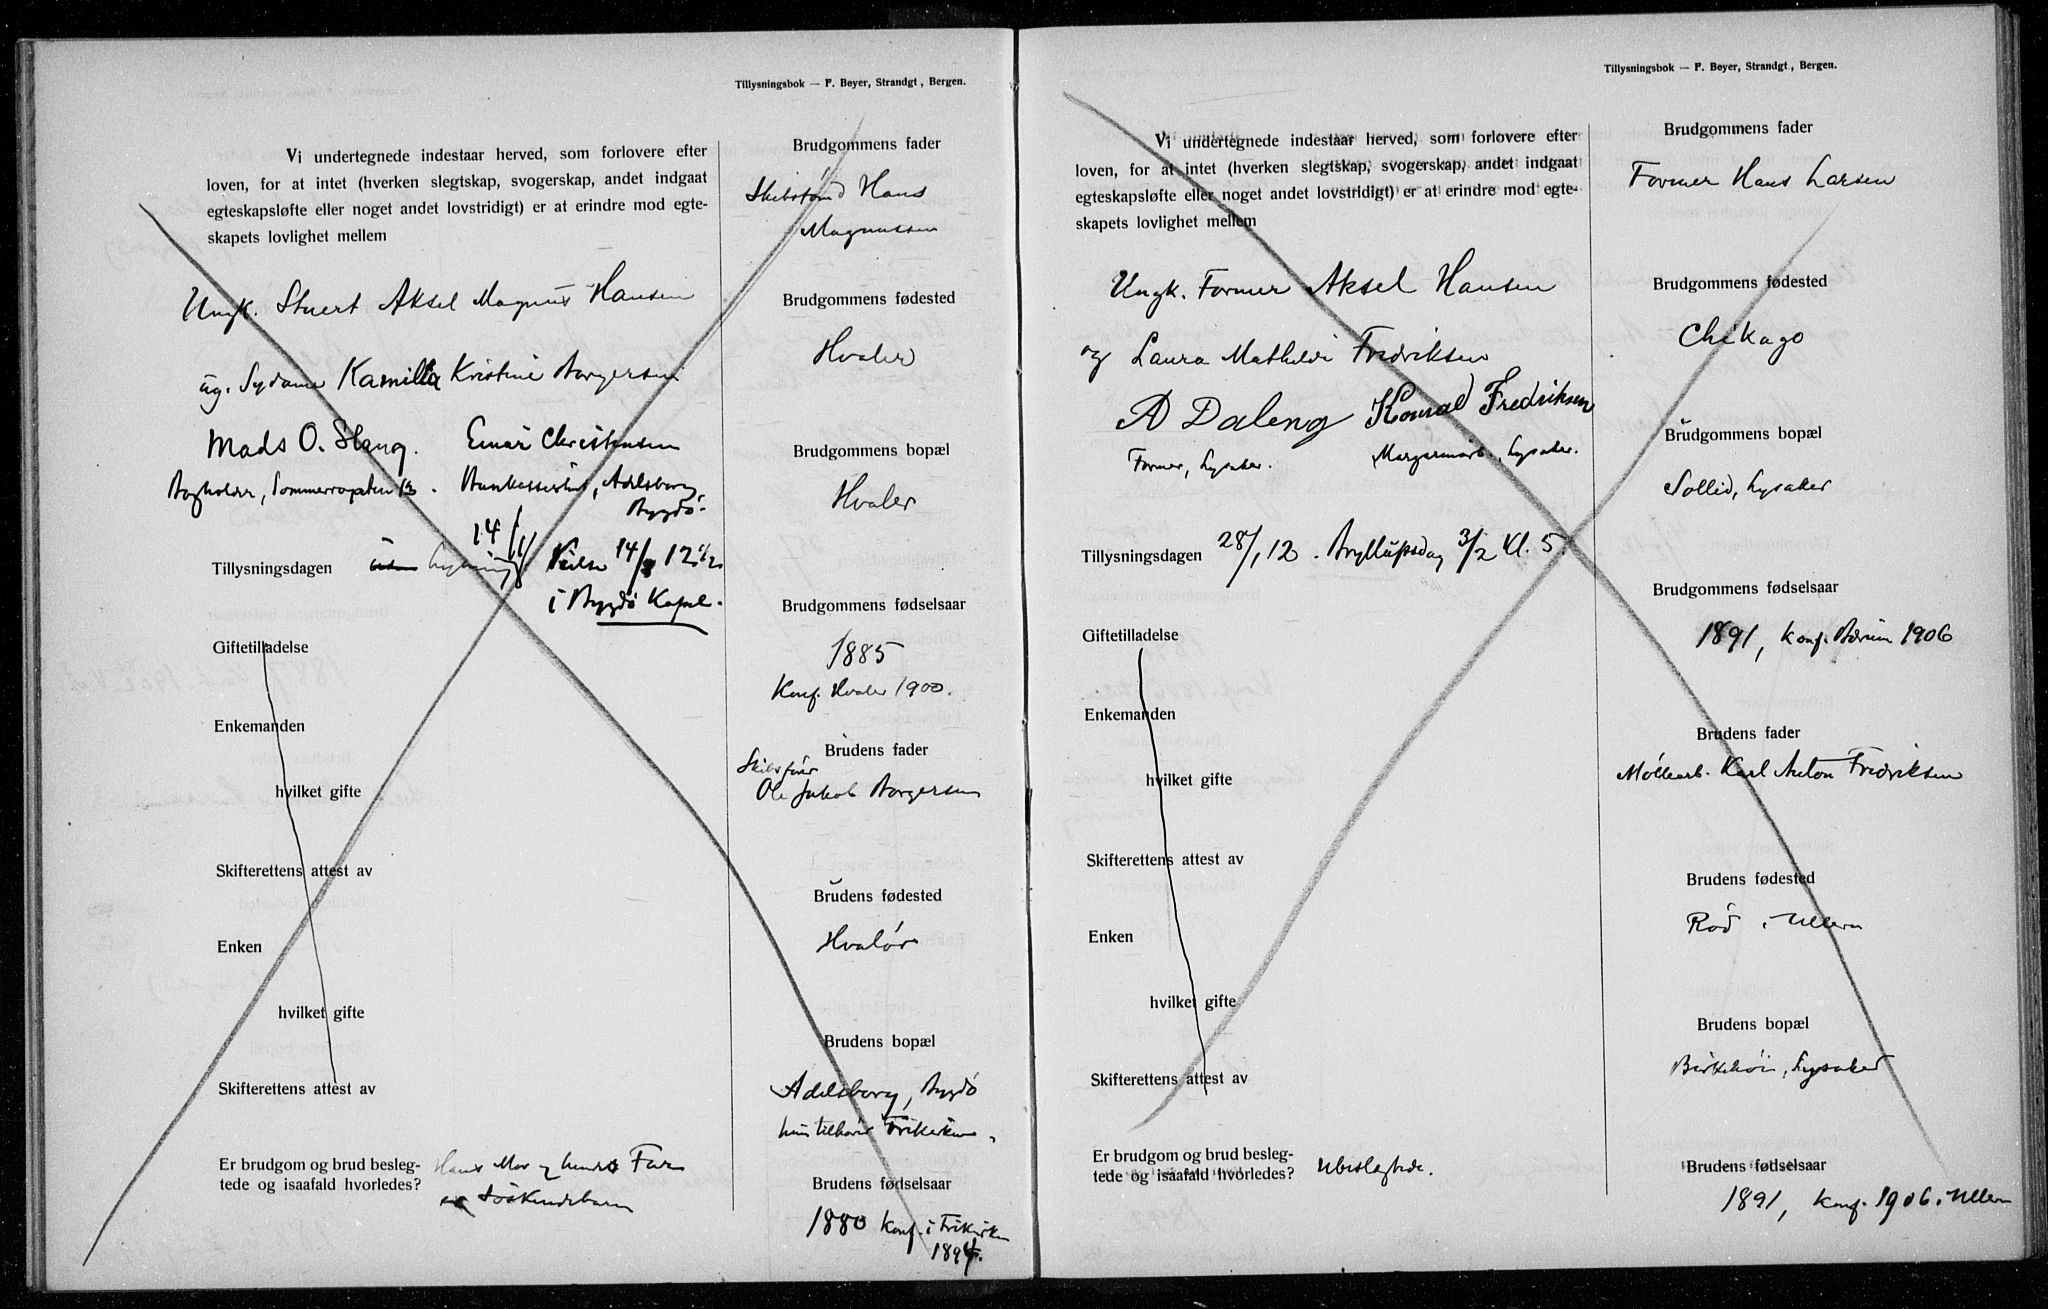 Tillysningsbok — F. Beyer, Strandgt, Bergen.
Vi undertegnede indestaar herved, som forlovere efter
loven, for at intet (hverken slegtskap, svogerskap, andet indgaat
egteskapsløfte eller noget andet lovstridigt) er at erindre mod egte-
skapets lovlighet mellem
Ungk. Stuert Aksel Magnus Hansen
ug. Sydame Kamilla Kristine Borgersen
Mads O. Slang. Einar Christensen
Sommerrogaten 13. Bankassistent, Adelsborg,
Bygdø.
14/1
Tillysningsdagen lysning Vielse 14/2 12 1/2
i Bygdø Kapel.
Giftetilladelse
Enkemanden
hvilket gifte
Skifterettens attest av
Enken
hvilket gifte
Skifterettens attest av
Er brudgom og brud besleg-
tede og isaafald hvorledes?
Hans Mor og hendes Far
er Søskendebarn
Brudgommens fader
Hans
Magnussen
Brudgommens fødested
Hvaler
Brudgommens bopæl
Hvaler
Brudgommens fødselsaar
1885
Konf. Hvaler 1900.
Brudens fader
Skibsfører
Ole Jakob Borgersen
Brudens fødested
Hvaler
Brudens bopæl
Adelsborg, Bygdø
hun tilhører Frikirken.
Brudens fødselsaar
1880 konf. i Frikirken
1894.
Tillysningsbok — F. Beyer, Strandgt, Bergen.
Vi undertegnede indestaar herved, som forlovere efter
loven, for at intet (hverken slegtskap, svogerskap, andet indgaat
egteskapsløfte eller noget andet lovstridigt) er at erindre mod egte-
skapets lovlighet mellem
Ungk. Former Aksel Hansen
og Laura Mathilde Fredriksen
A Daleng Konrad Fredriksen
Former, Lysaker. Margarinarb., Lysaker.
Tillysningsdagen 28/1 12. Bryllupsdag 3/2 Kl. 5.
Giftetilladelse
Enkemanden
hvilket gifte
Skifterettens attest av
Enken
hvilket gifte
Skifterettens attest av
Er brudgom og brud besleg-
tede og isaafald hvorledes?
Ubeslegtede.
Brudgommens fader
Former Hans Larsen
Brudgommens fødested
Chikago
Brudgommens bopæl
Sollid, Lysaker
Brudgommens fødselsaar
1891, konf. Bærum 1906
Brudens fader
Møllearb. Karl Anton Fredriksen
Brudens fødested
Rød i Ullern
Brudens bopæl
Birkehøi, Lysaker
Brudens fødselsaar
1891, konf. 1906 i Ullern